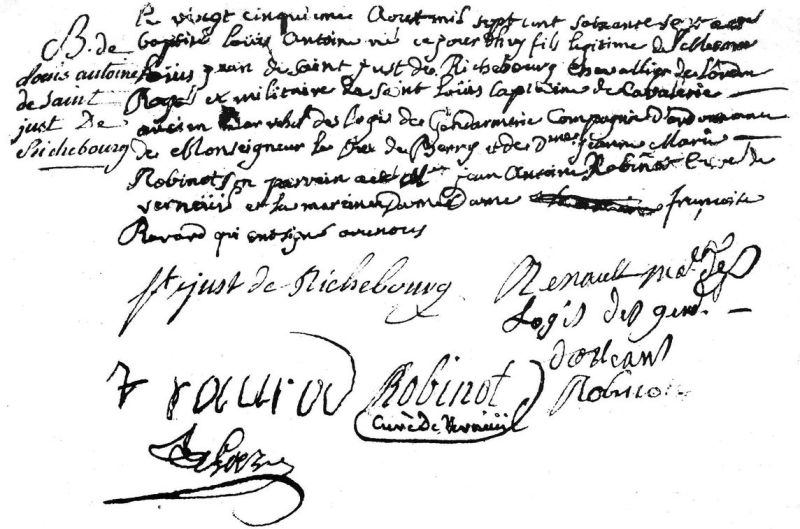 B. de
Louis antoine
de Saint
just De
Richebourg
Le vingt cinquieme Aoust mil sept cent soixante sept a été
baptisé Loüis Antoine né ce jourd'huy fils legitime de Messire
Loüis jean de Saint just de Richebourg chevallier de L'ordre
Royal et militaire de Saint Loüis capitaine de Cavalerie
ancien mareschal des Logis de Gendarmerie Compagnie D'ordonnance
de Monseigneur le Duc de Berry et de Dme jeanne Marie
Robinot son parrain a été jean Antoine Robinot Curé de
verneüil et la mareine dame Dame françoise
Ravard qui ont signé avec nous
St just de Richebourg
Renault mal des
Logis des gend.
d'orleans
Robinot
f ravard
Robinot
curé de Verneüil